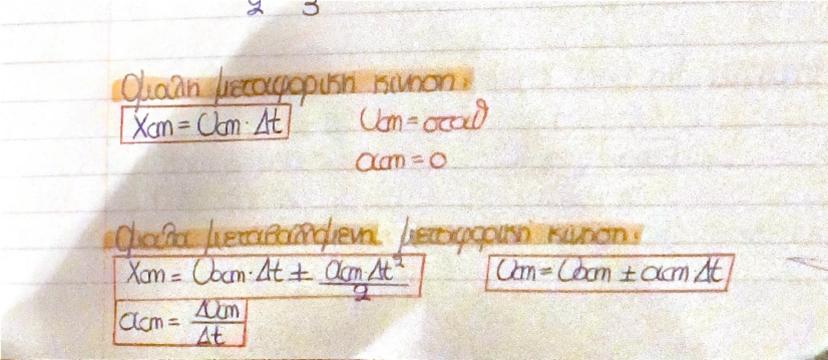 2 3
Ομαλη μεταφορικη κινηση:
Xcm = Ucm · Δt Ucm = σταθ
αcm = 0
Ομαλα μεταβαλλομενη μεταφορικη κινηση:
Xcm = Uocm · Δt ± αcm Δt²/2 Ucm = Uocm ± αcm Δt
αcm = ΔUcm/Δt